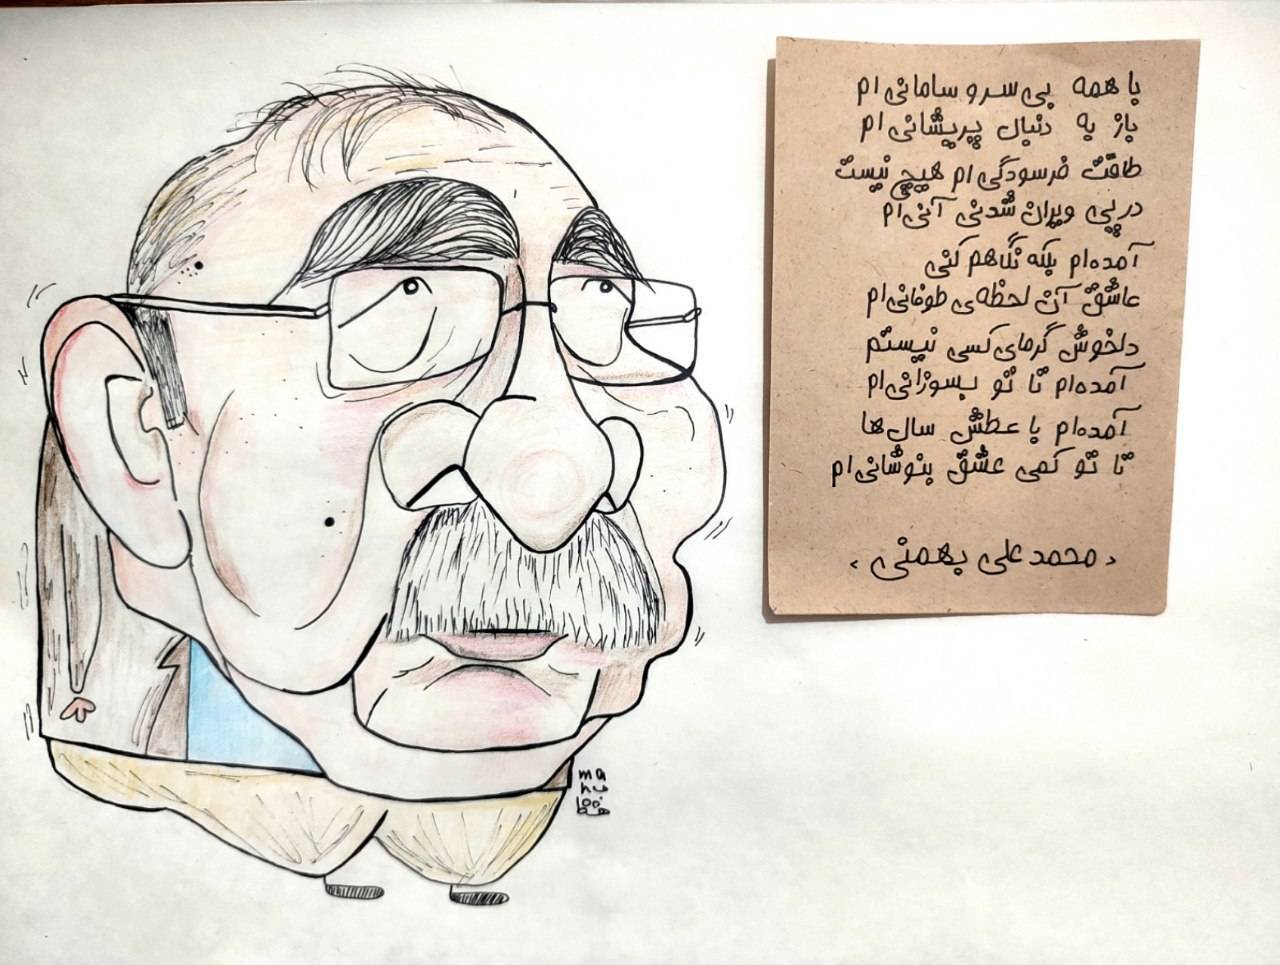 با همه بی سر و سامانی ام
باز به دنبال پریشانی ام
طاقت فرسودگی ام هیچ نیست
در پی ویران شدنی آنی ام
آمده ام بلکه نگاهم کنی
عاشق آن لحظه ی طوفانی ام
دلخوش گرمای کسی نیستم
آمده ام تا تو بسوزانی ام
آمده ام با عطش سال ها
تا تو کمی عشق بنوشانی ام
، محمد علی بهمنی ،